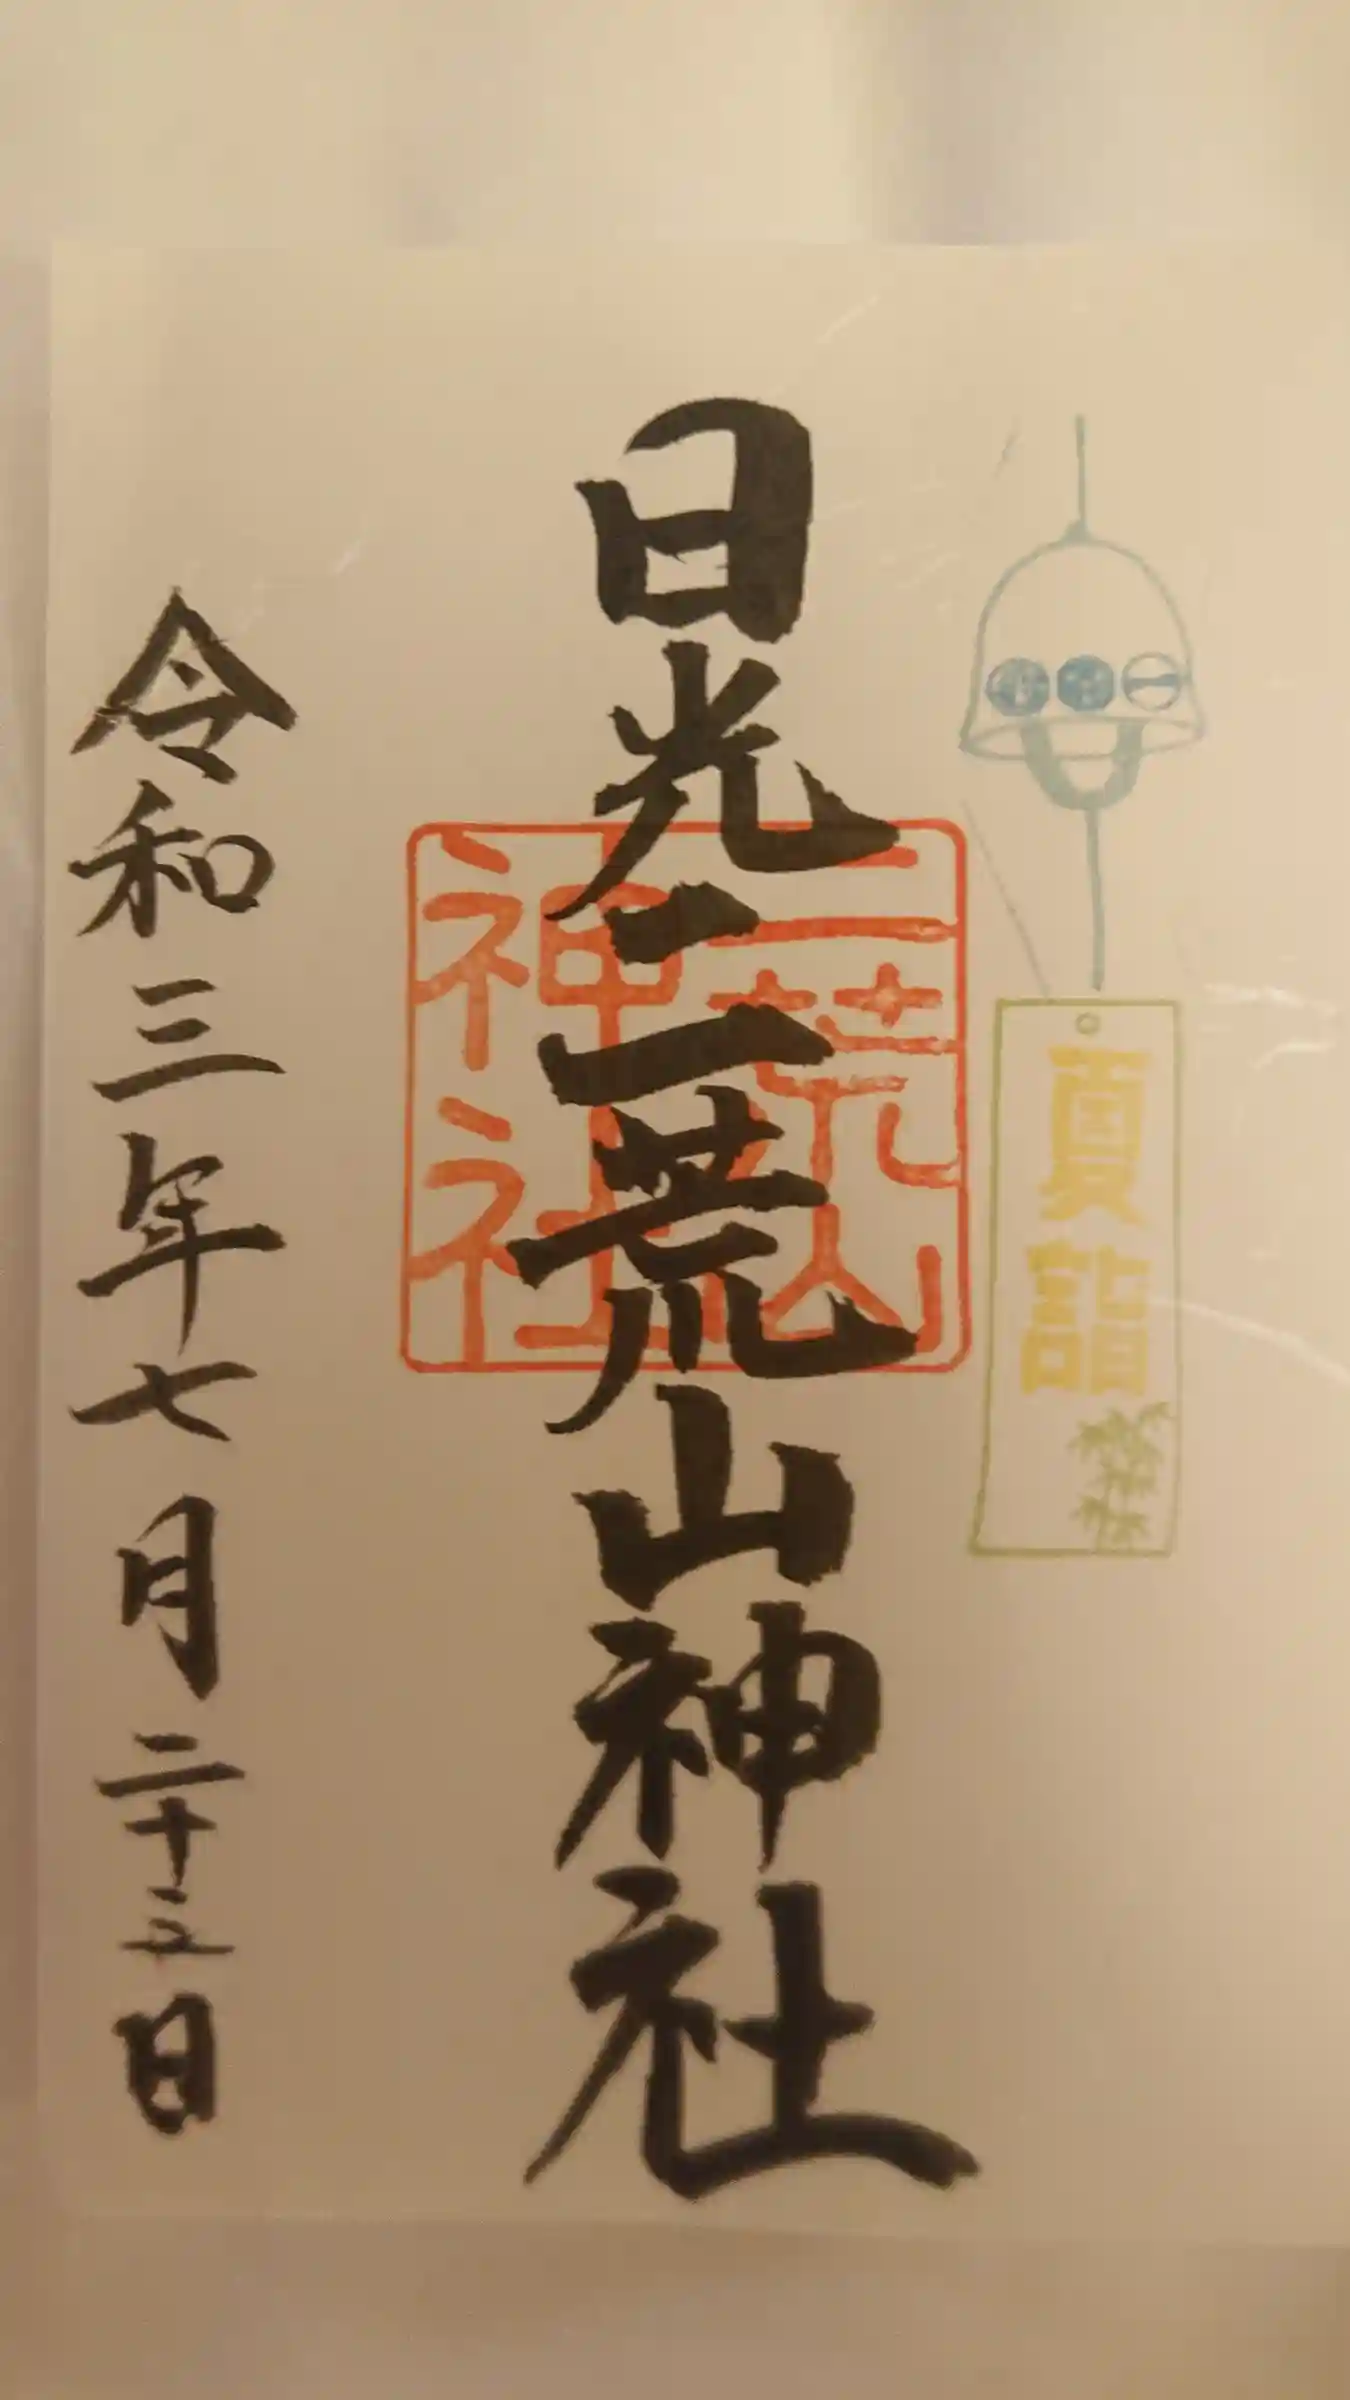 夏詣
日光二荒山神社
二荒山
神社
令和三年七月二十三日